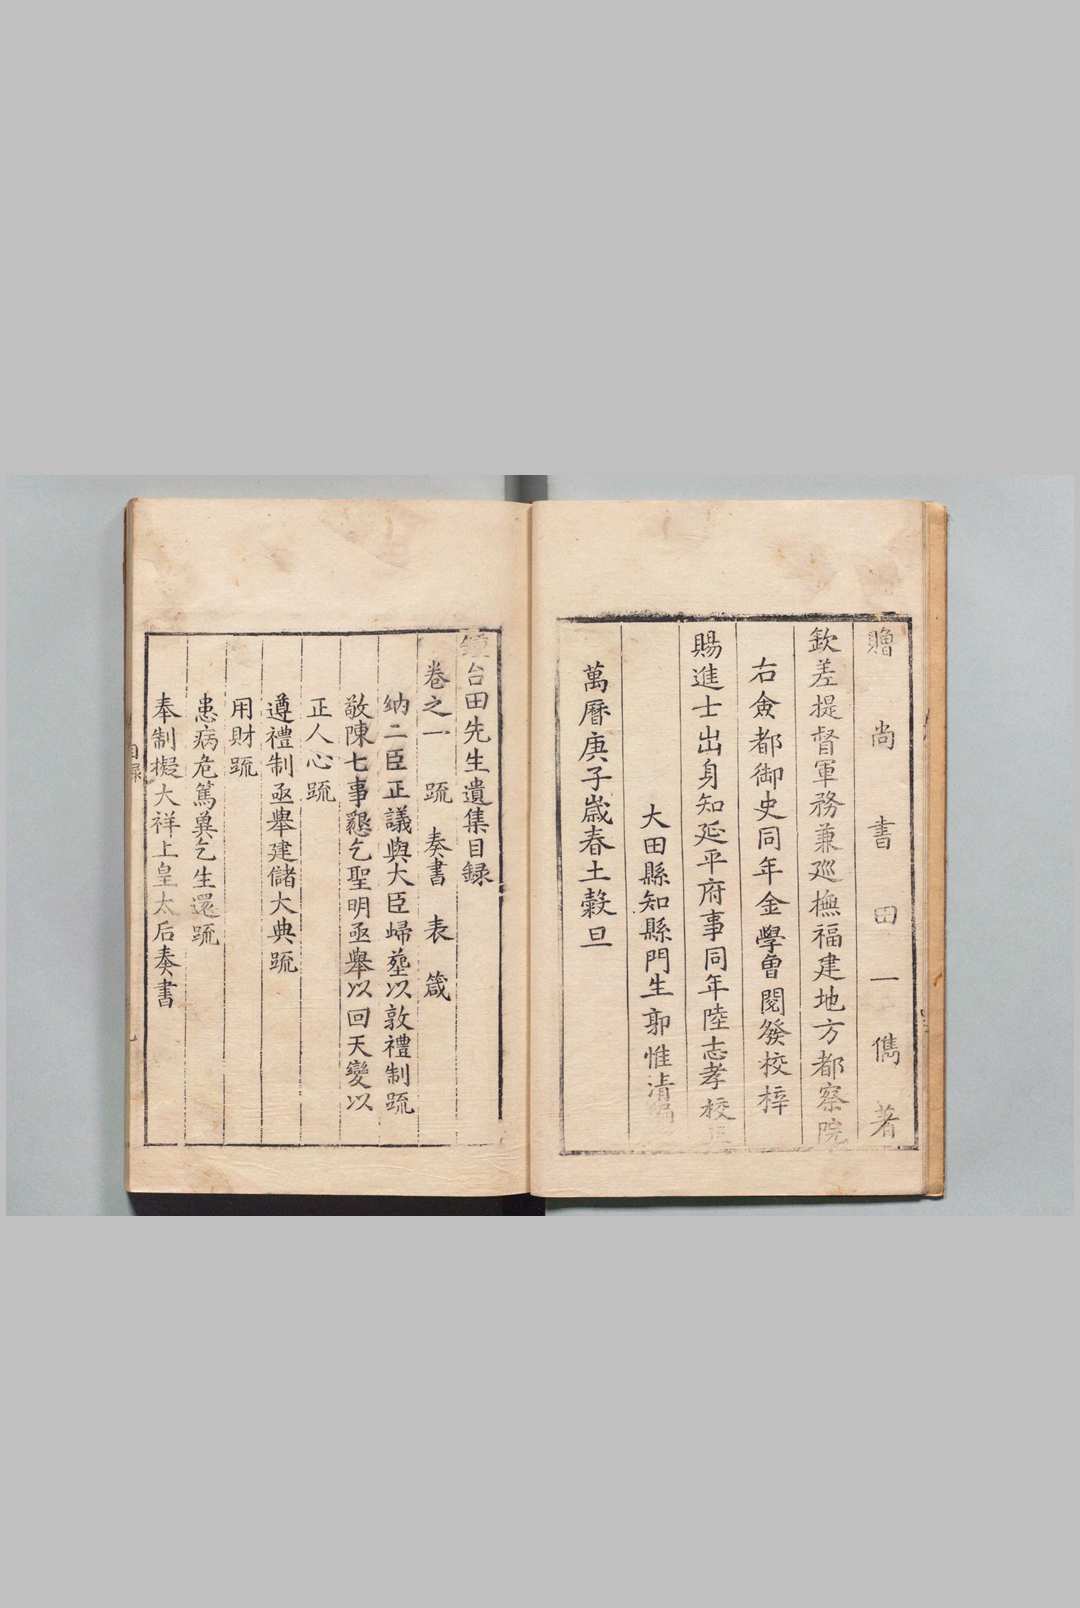 贈尚書田一儁著
欽差提督軍務兼廵撫福建地方都察院
右僉都御史同年金學曽閱發校梓
賜進士出身知延平府事同年陸志孝校
大田縣知縣門生郭惟清編
萬曆庚子歲春土穀旦
鍾台田先生遺集目録
卷之一 疏 奏書 表 箴
納二臣正議與大臣歸塟以敦禮制疏
敬陳七事懇乞聖明亟舉以回天變以
正人心疏
遵禮制亟舉建儲大典疏
用財疏
患病危篤兾乞生還疏
奉制擬大祥上皇太后奏書
目録